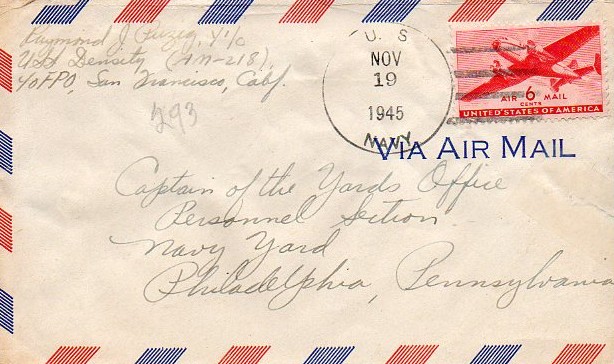 Raymond J Y1/c
USS Density (AM-218),
℅ FPO, San Francisco, Calif.
293
U. S.
NOV
19
1945
NAVY
AIR 6 MAIL
CENTS
UNITED STATES OF AMERICA
VIA AIR MAIL
Captain of the Yards Office
Personnel Section
Navy Yard
Philadelphia, Pennsylvania